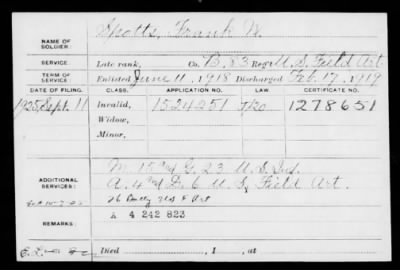 NAME OF SOLDIER: Spotts, Frank N.
SERVICE: Late rank, Co. B, 83 Reg't U.S. Field Art
TERM OF SERVICE: Enlisted June 11, 1918 Discharged Feb. 17, 1919
DATE OF FILING. CLASS. APPLICATION NO. LAW. CERTIFICATE NO.
1925, Sept. 11 Invalid, 1524251 1278651
Widow,
Minor,
ADDITIONAL SERVICES: M. 15 and G. 23 U.S. Inf.
A. 4 and D. 6 U.S. Field Art.
26 Batty U.S. F Art
REMARKS: A 4 242 823
Died , 1 , at